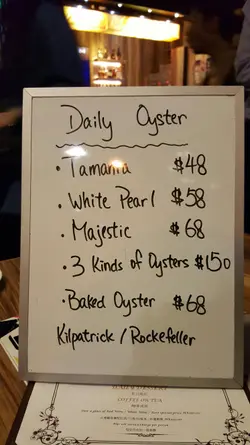 Daily Oyster
· Tamanra $48
· White Pearl $58
· Majestic $68
· 3 Kinds of Oysters $150
· Baked Oyster $68
Kilpatrick / Rockefeller
COFFEE OR TEA